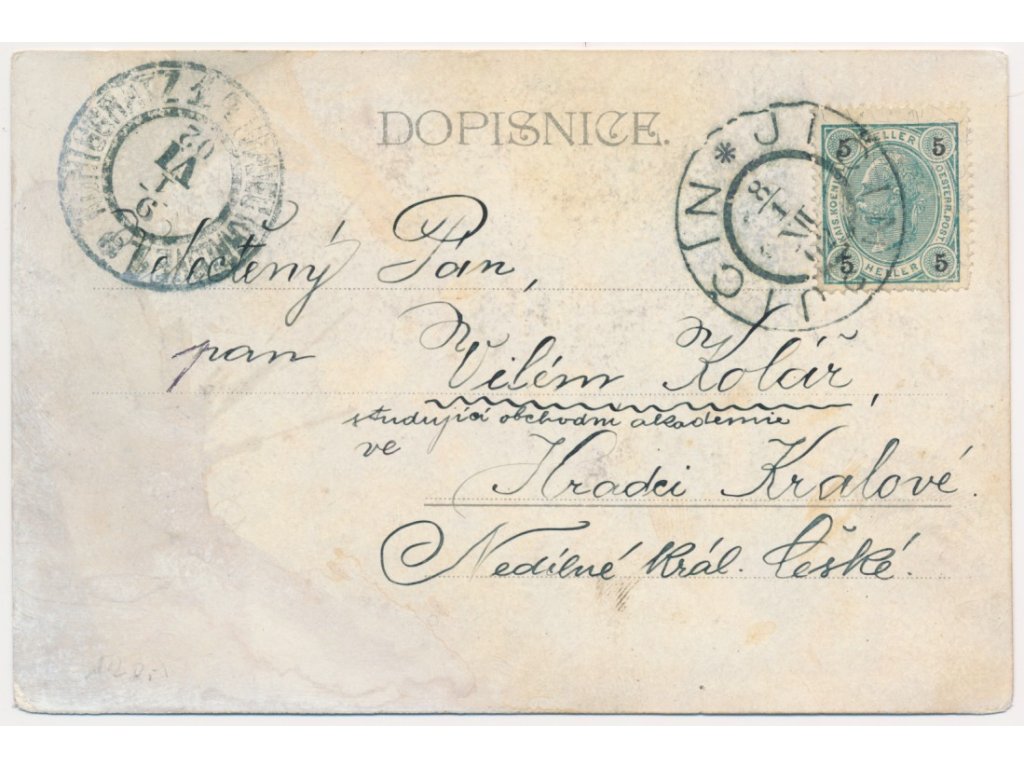 DOPISNICE.
JIČIN * JIČIN
8/1 VII
5 5
KAIS. KOENIGL. OESTERR. POST
HELLER HELLER
5 5
Velectěný Pan,
pan Vilém Kolář,
studující obchodní akademie
ve
Hradci Kralové.
Nedílné král. České.